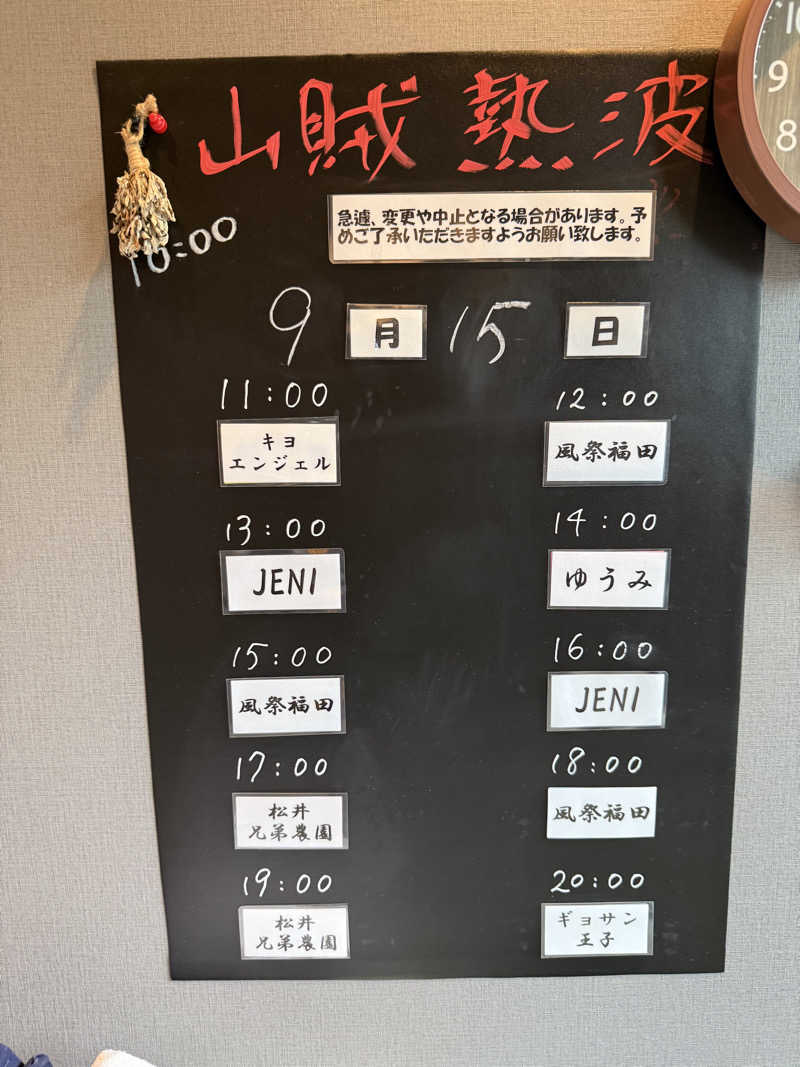 山賊 熱波
急遽、変更や中止となる場合があります。予
めご了承いただきますようお願い致します。
10:00
9 月 15 日
11:00
キヨ
エンジェル
12:00
風祭福田
13:00
JENI
14:00
ゆうみ
15:00
風祭福田
16:00
JENI
17:00
松井
兄弟農園
18:00
風祭福田
19:00
松井
兄弟農園
20:00
ギョサン
王子
10
9
8